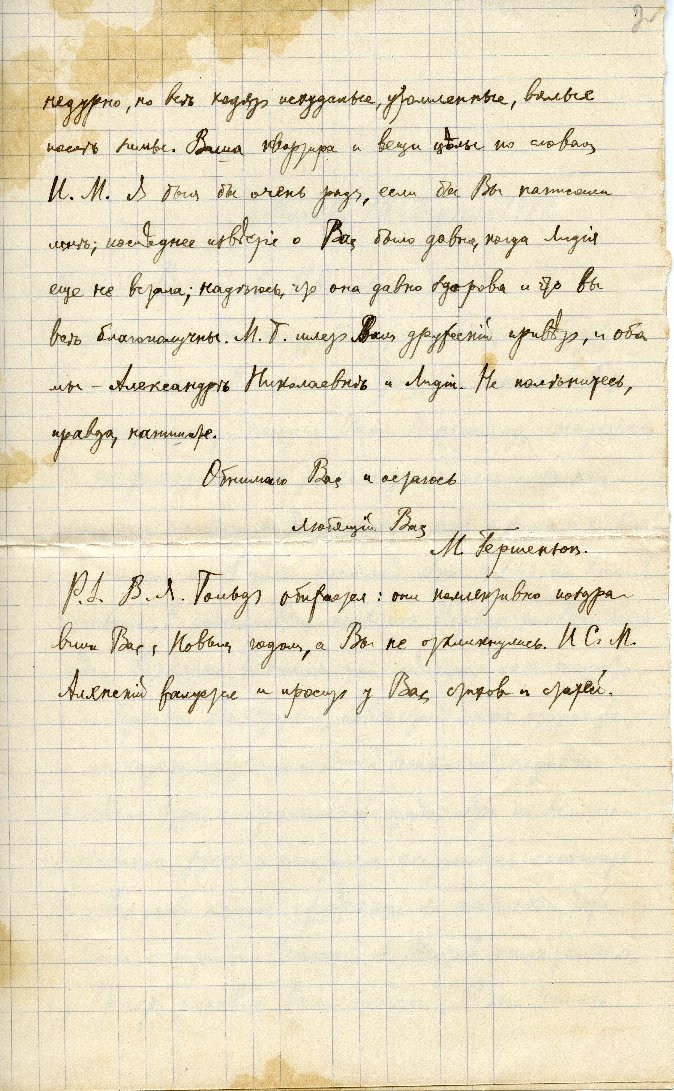 2
недурно, но всѣ ходят исхудалые, утомленные, вялые
послѣ зимы. Ваша квартира и вещи цѣлы по словам
И. М. Я был бы очень радъ, если бы Вы написали
мнѣ; послѣднее извѣстіе о Вас было давно, когда Лидія
еще не встала; надѣюсь, что она давно здорова и что вы
всѣ благополучны. М. Б. шлет Вам дружескій привѣт, и оба
мы – Александрѣ Николаевнѣ и Лидіи. Не полѣнитесь,
правда, напишите.
Обнимаю Вас и остаюсь
любящій Вас
М. Гершензон.
P.S. В. Я. Гольд обижается: они коллективно поздра-
вили Вас с Новым годом, а Вы не откликнулись. И С. М.
Алянскій жалуется и просит у Вас стихов и статей.